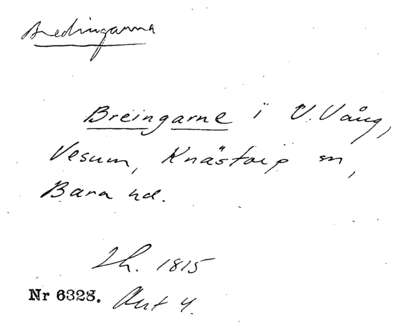 Bredingarna
Breingarne i V. Vång,
Vesum, Knästorp sn,
Bara hd.
Lh. 1815
Nr 6328. Akt 4.